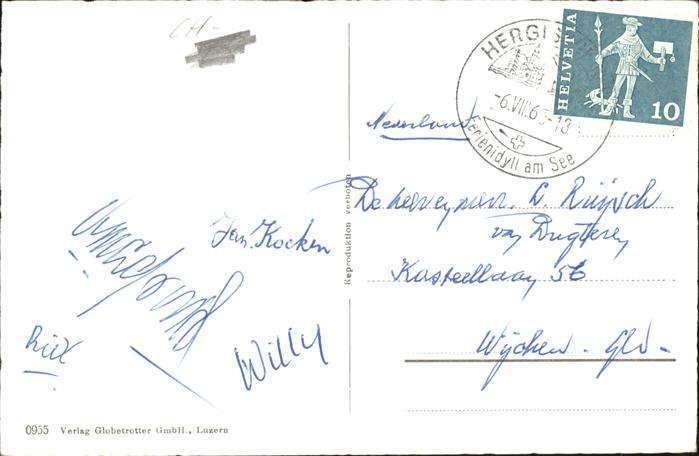 CH-
HERGIS
HELVETIA
10
-6.VIII.6
-18
Ferienidyll am See
Nederland
De heer en mevr. L. Ruijsch
van Dugteren
Kasteellaan 56
Wijchen - Gld -
Jan Kocken
Willy
Reproduktion verboten
0955 Verlag Globetrotter GmbH., Luzern